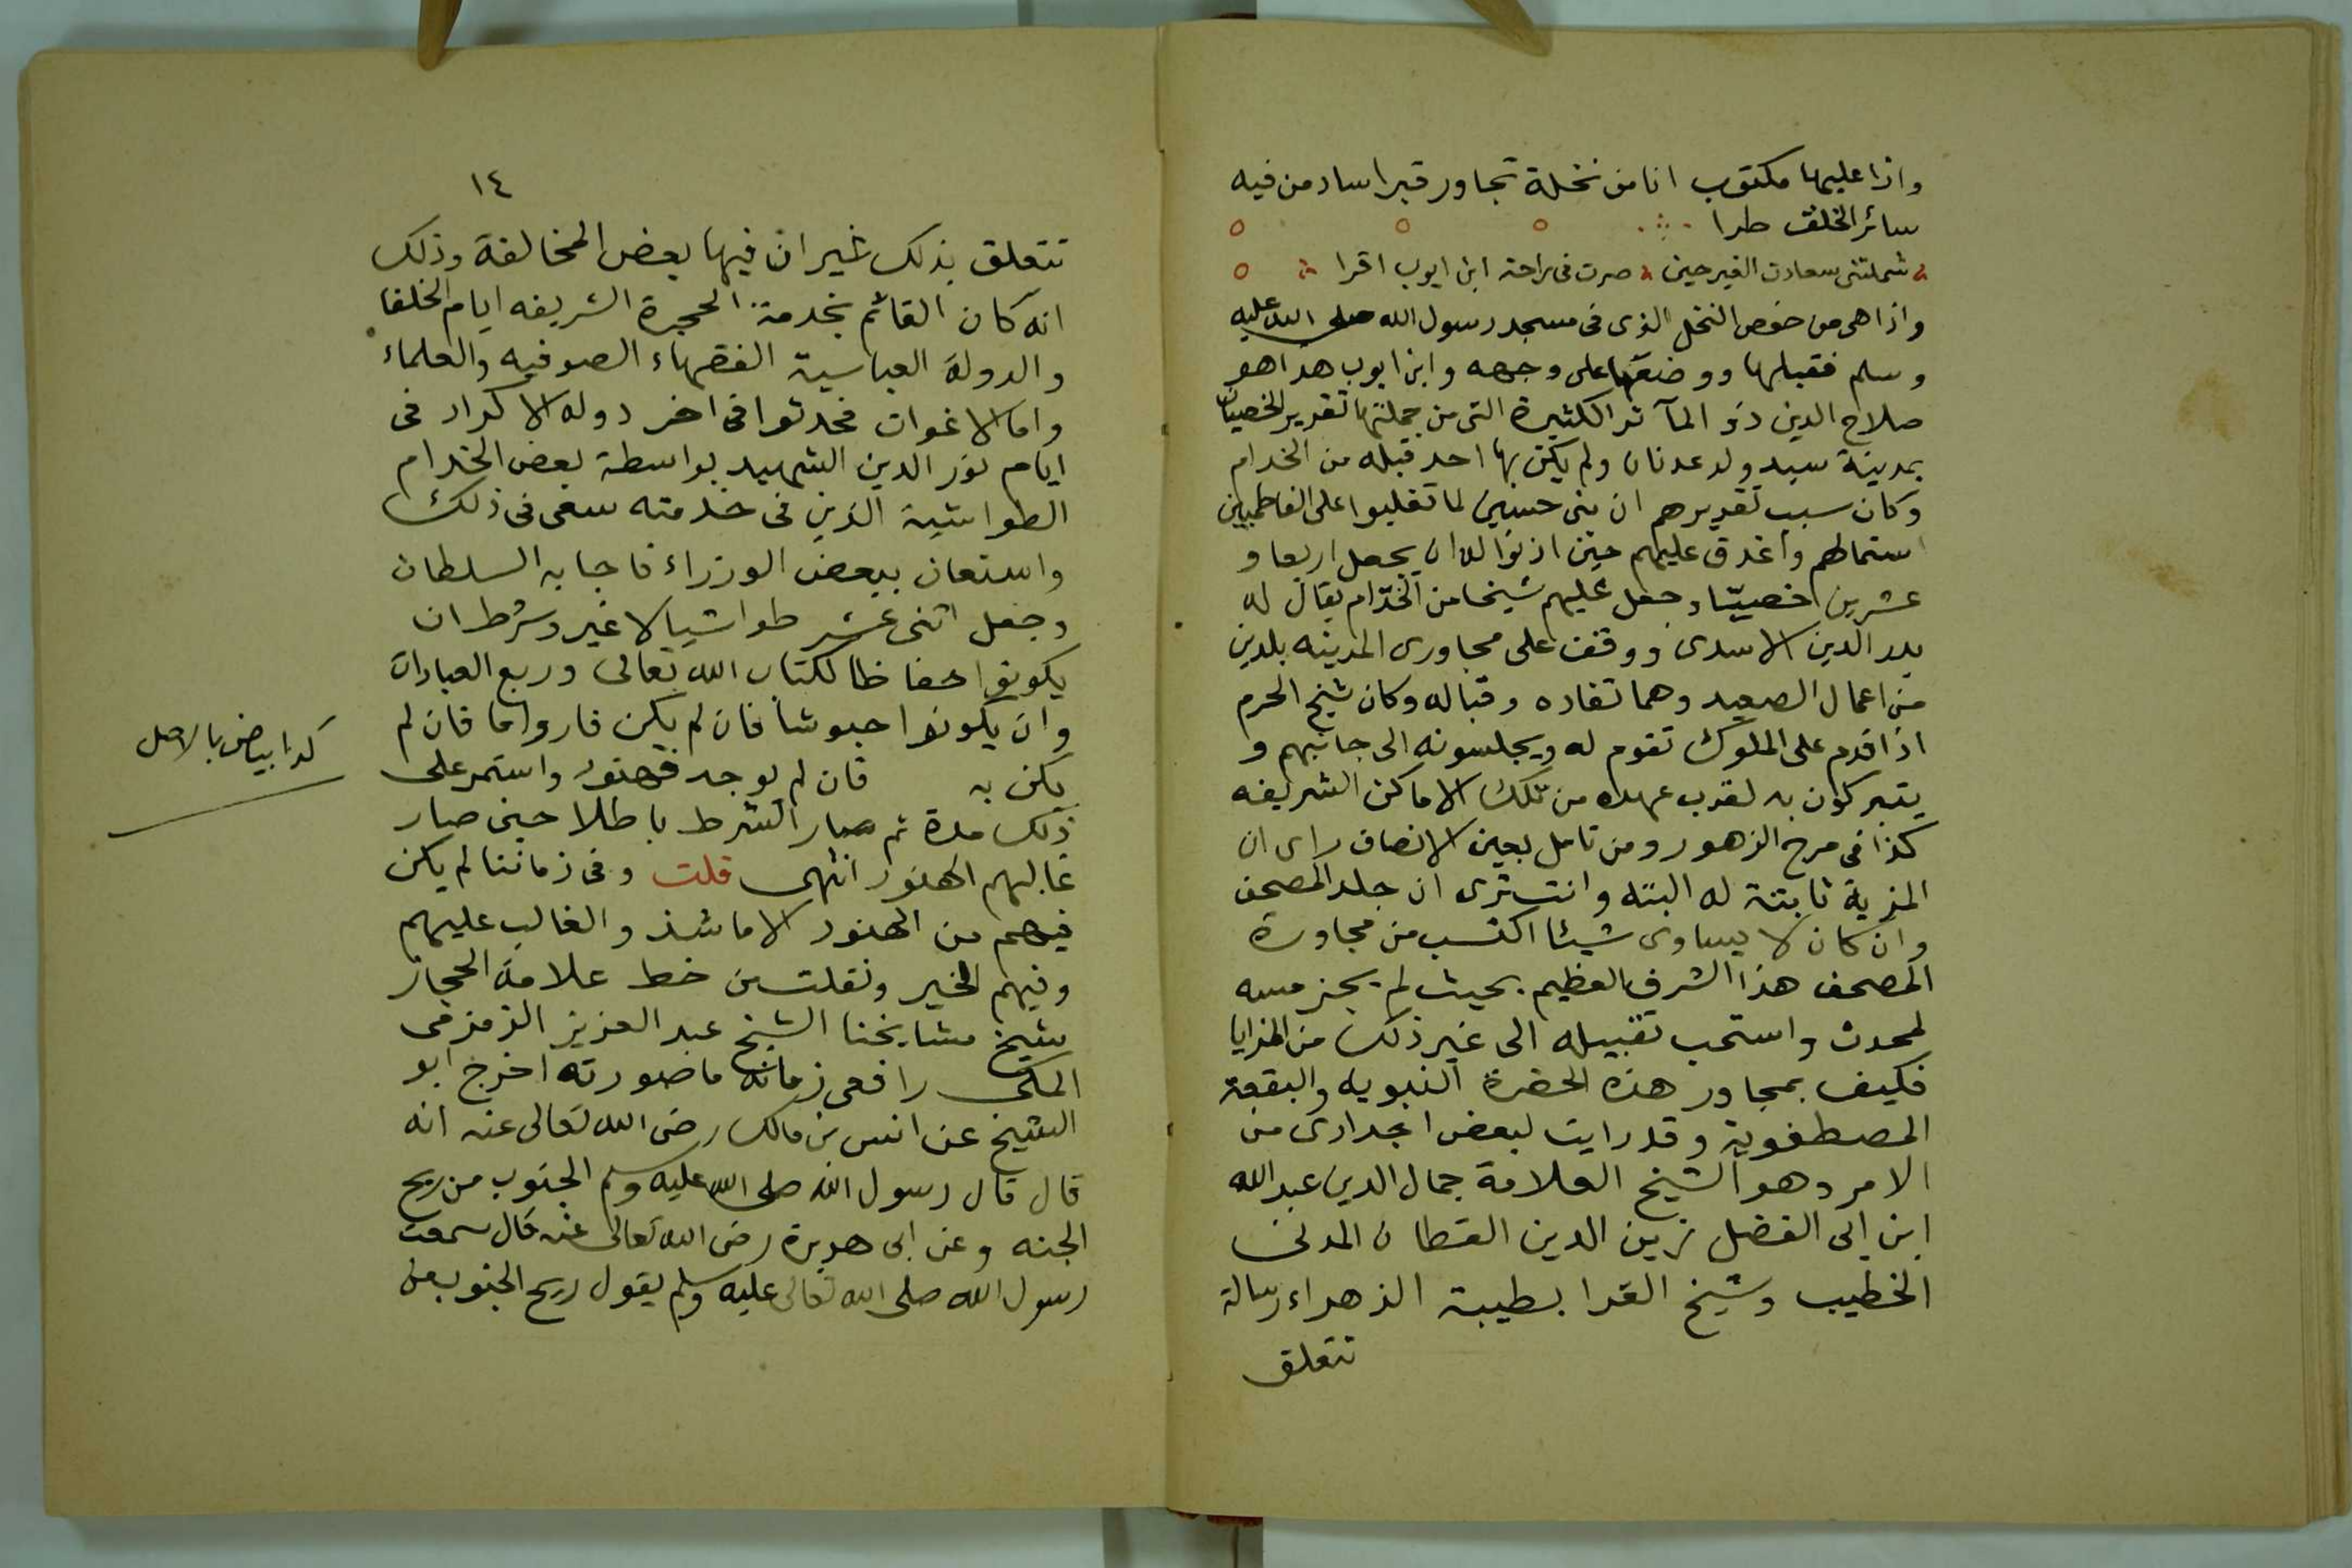 واذا عليها مكتوب انا من نخلة تجاور قبرا ساد من فيه
سائر الخلق طرا
شملتنى سعادت القبر حين صرت فى راحة ابن ايوب اقرا
واذا هى من خوص النخل الذى فى مسجد رسول الله صلى الله عليه
وسلم فقبلها ووضعها على وجهه وابن ايوب هذا هو
صلاح الدين ذو المآثر الكثيرة التى من جملتها تقدير الخصيان
بمدينة سيد ولد عدنان ولم يكن بها احد قبله من الخدام
وكان سبب تقديرهم ان بنى حسين لما تغلبوا على الفاطميين
استمالهم واغدق عليهم حين اذنوا له ان يجعل اربعا و
عشرين خصييّا وجعل عليهم شيخا من الخدّام يقال له
بدر الدين الاسدى ووقف على مجاورى المدينه بلدين
من اعمال الصعيد وهما نقاده وقباله وكان شيخ الحرم
اذا قدم على الملوك تقوم له ويجلسونه الى جانبهم و
يتبركون به لقرب عهده من تلك الاماكن الشريفه
كذا فى مرج الزهور ومن تامل بعين الانصاف راى ان
المزية ثابتة له البته وانت ترى ان جلد المصحف
وان كان لا يساوى شيئا اكتسب من مجاورة
المصحف هذا الشرف العظيم بحيث لم يجز مسه
لمحدث واستحب تقبيله الى غير ذلك من المزايا
فكيف بمجاور هذه الحضرة النبويه والبقعة
المصطفوية وقد رايت لبعض اجدادى من
الامر وهو الشيخ العلامة جمال الدين عبد الله
ابن ابى الفضل زين الدين القطان المدنى
الخطيب وشيخ القرا بطيبة الزهراء رسالة
تتعلق
١٤
تتعلق بذلك غير ان فيها بعض المخالفة وذلك
انه كان القائم بخدمة الحجرة الشريفه ايام الخلفا
والدولة العباسية الفقهاء الصوفيه والعلماء
واما الاغوات فحدثوا فى اخر دوله الاكراد فى
ايام نور الدين الشهيد بواسطة بعض الخدام
الطواشية الذين فى خدمته سعى فى ذلك
واستعان ببعض الوزراء فاجابه السلطان
وجعل اثنى عشر طواشيا لا غير وشرط ان
يكونوا حفاظا لكتاب الله تعالى وربع العبادات
وان يكونوا حبوشا فان لم يكن فاروا ما فان لم
يكن به فان لم يوجد فهنود واستمر على
كذا بياض بالاصل
ذلك مدة ثم صار الشرط باطلا حين صار
غالبهم الهنود انتهى قلت وفى زماننا لم يكن
فيهم من الهنود الا ما شذ والغالب عليهم
وفيهم الخير ونقلت من خط علامة الحجاز
شيخ مشايخنا الشيخ عبد العزيز الزمزمى
المكى رافعى زمانه ما صورته اخرج ابو
الشيخ عن انس بن مالك رضى الله تعالى عنه انه
قال قال رسول الله صلى الله عليه وسلم الجنوب من ريح
الجنه وعن ابى هريرة رضى الله تعالى عنه قال سمعت
رسول الله صلى الله تعالى عليه وسلم يقول ريح الجنوب من